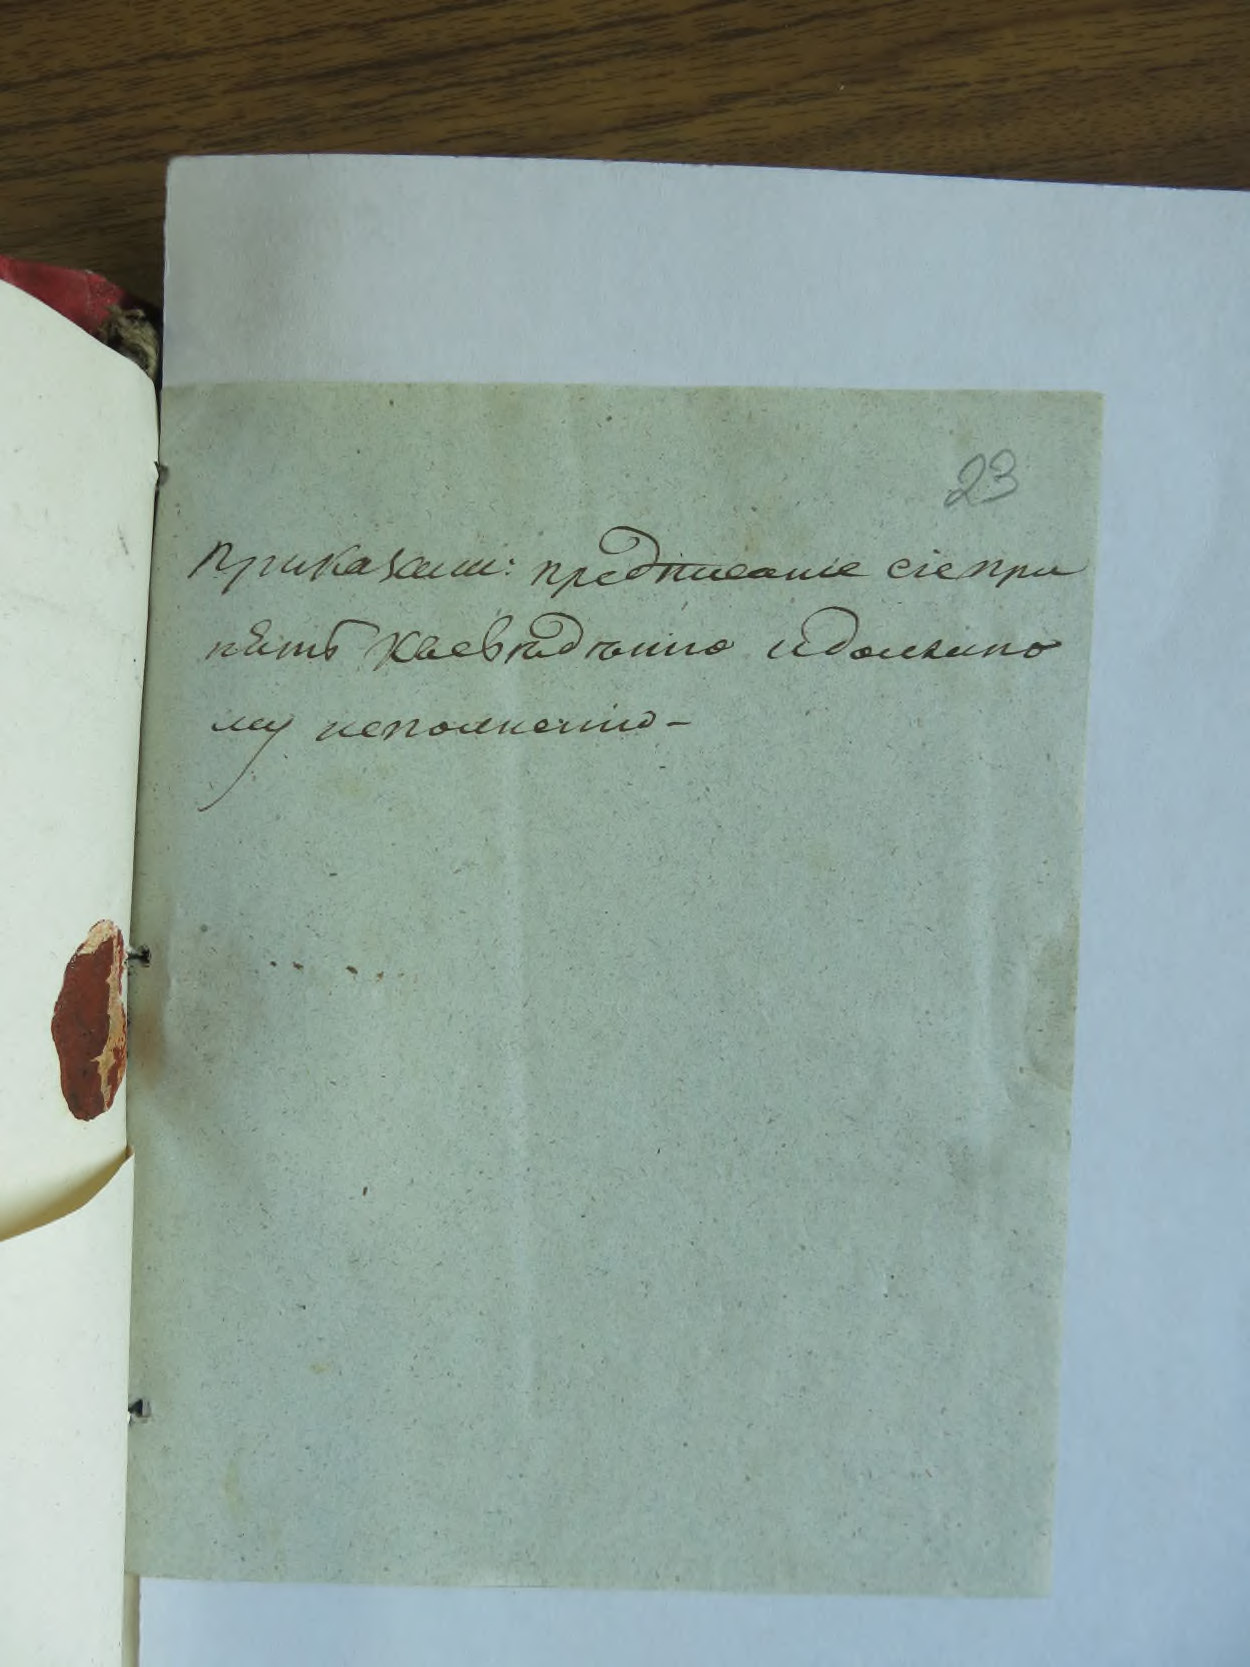 23
приказали: предписание сіе при
нять къ сведѣнию и должно
му исполнению -